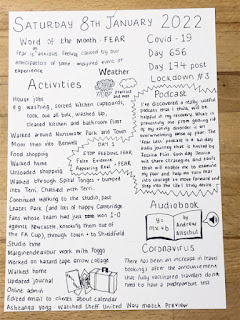 SATURDAY 8TH JANUARY 2022
Word of the month: FEAR
Fear is anxious feeling caused by our
anticipation of some imagined event or
experience
Covid-19
Day 656
Day 174 post
Lockdown #3
Weather
Activities
House jobs
e.g. washing, sorted kitchen cupboards,
took out all bulk, washed up,
cleaned kitchen and bathroom floor
Walked around Nunsmoor Park and Town
Moor then into Benwell
Food shopping
Walked home
Unloaded shopping
Walked through Spital Tongues + bumped
into Terri. Chatted with Terri.
Continued walking to the student, past
Leazes Park (and lots of happy Cambridge
fans whose team had just won 1-0
against Newcastle, knocking them out of
the FA cup), through town + to Shieldfield
Studio time
Marginendeavour work with Yoggo
Worked on keyword tape arrow collage
Walked home
Updated journal
Online admin
Edited email to clients about calendar
Ashtanga yoga
Watched Sheff United
Wau match preview
DAY 1
STOP FEEDING FEAR
False Evidence
Appearing Real = FEAR
Podcast
I've discovered a really useful
podcast that I think will be
helpful in my recovery. What is
preventing me from getting rid
of my eating disorder is an
overwhelming sense of fear. The
'Fear Less' podcast is a 30 day
audio journey that is hosted by
Jessica Flint. Each day Jessica
will share strategies and tools
that will enable me to examine
my fear and help me have the
courage to move forward and
step into the life I truly desire.
Audiobook
y=
mx+b
by
Andrew
Aristius
Coronavirus
There has been an increase in travel
bookings after the announcement
that fully vaccinated travellers don't
need to have a predeparture test